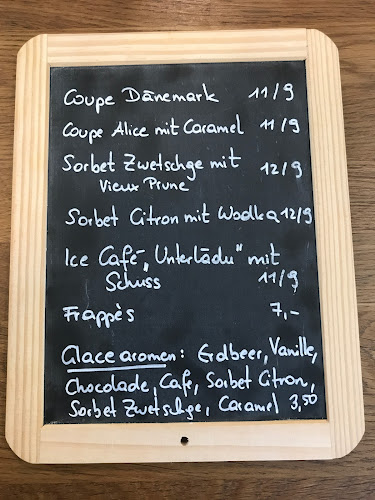 Coupe Dänemark 11/9
Coupe Alice mit Caramel 11/9
Sorbet Zwetschge mit 12/9
Vieux Prune
Sorbet Citron mit Wodka 12/9
Ice Café „Unterlädu" mit
Schuss 11/9
Frappès 7,-
Glacearomen: Erdbeer, Vanille,
Chocolade, Cafe, Sorbet Citron,
Sorbet Zwetschge, Caramel 3,50